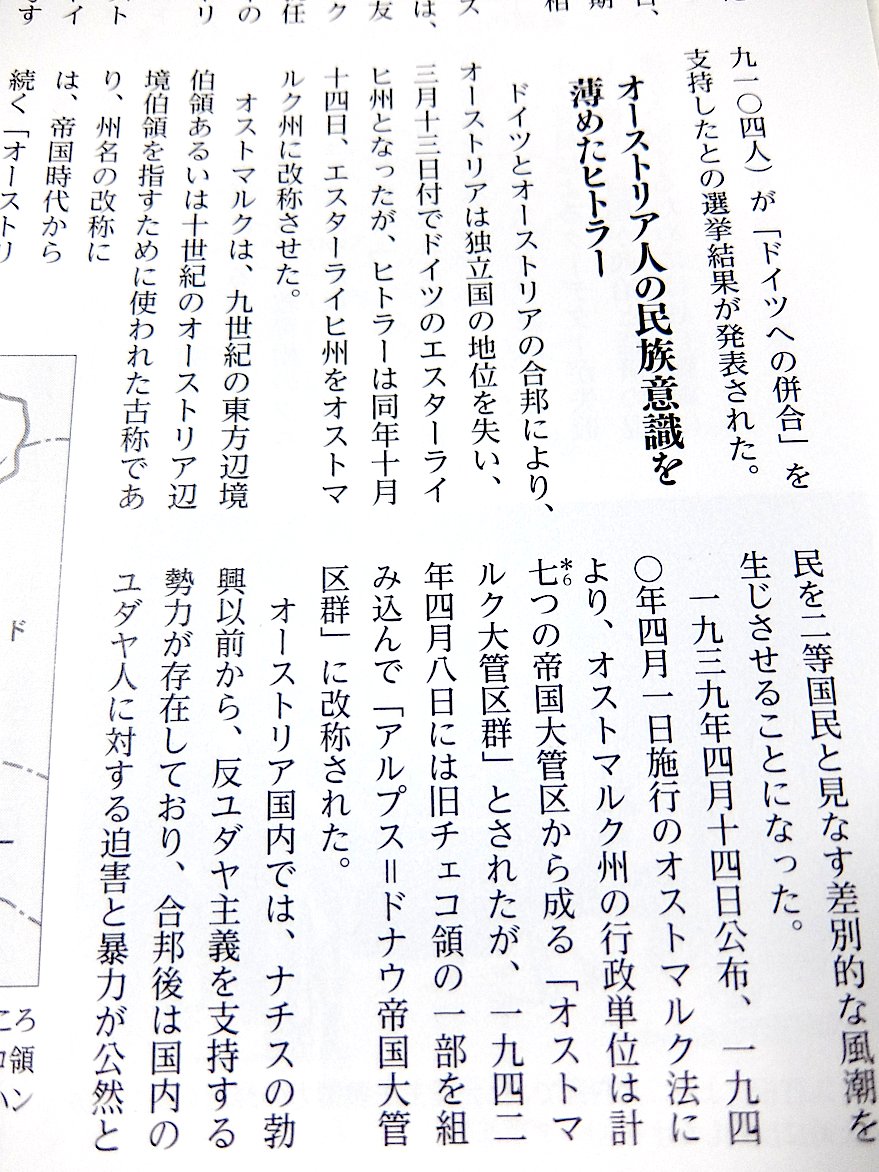 九一〇四人）が「ドイツへの併合」を
支持したとの選挙結果が発表された。
オーストリア人の民族意識を
薄めたヒトラー
ドイツとオーストリアの合邦により、
オーストリアは独立国の地位を失い、
三月十三日付でドイツのエスターライ
ヒ州となったが、ヒトラーは同年十月
十四日、エスターライヒ州をオストマ
ルク州に改称させた。
オストマルクは、九世紀の東方辺境
伯領あるいは十世紀のオーストリア辺
境伯領を指すために使われた古称であ
り、州名の改称に
は、帝国時代から
続く「オーストリ
民を二等国民と見なす差別的な風潮を
生じさせることになった。
一九三九年四月十四日公布、一九四
〇年四月一日施行のオストマルク法に
より、オストマルク州の行政単位は計
七つの帝国大管区から成る「オストマ
*6
ルク大管区群」とされたが、一九四二
年四月八日には旧チェコ領の一部を組
み込んで「アルプス＝ドナウ帝国大管
区群」に改称された。
オーストリア国内では、ナチスの勃
興以前から、反ユダヤ主義を支持する
勢力が存在しており、合邦後は国内の
ユダヤ人に対する迫害と暴力が公然と
ド
ころ
領
ハン